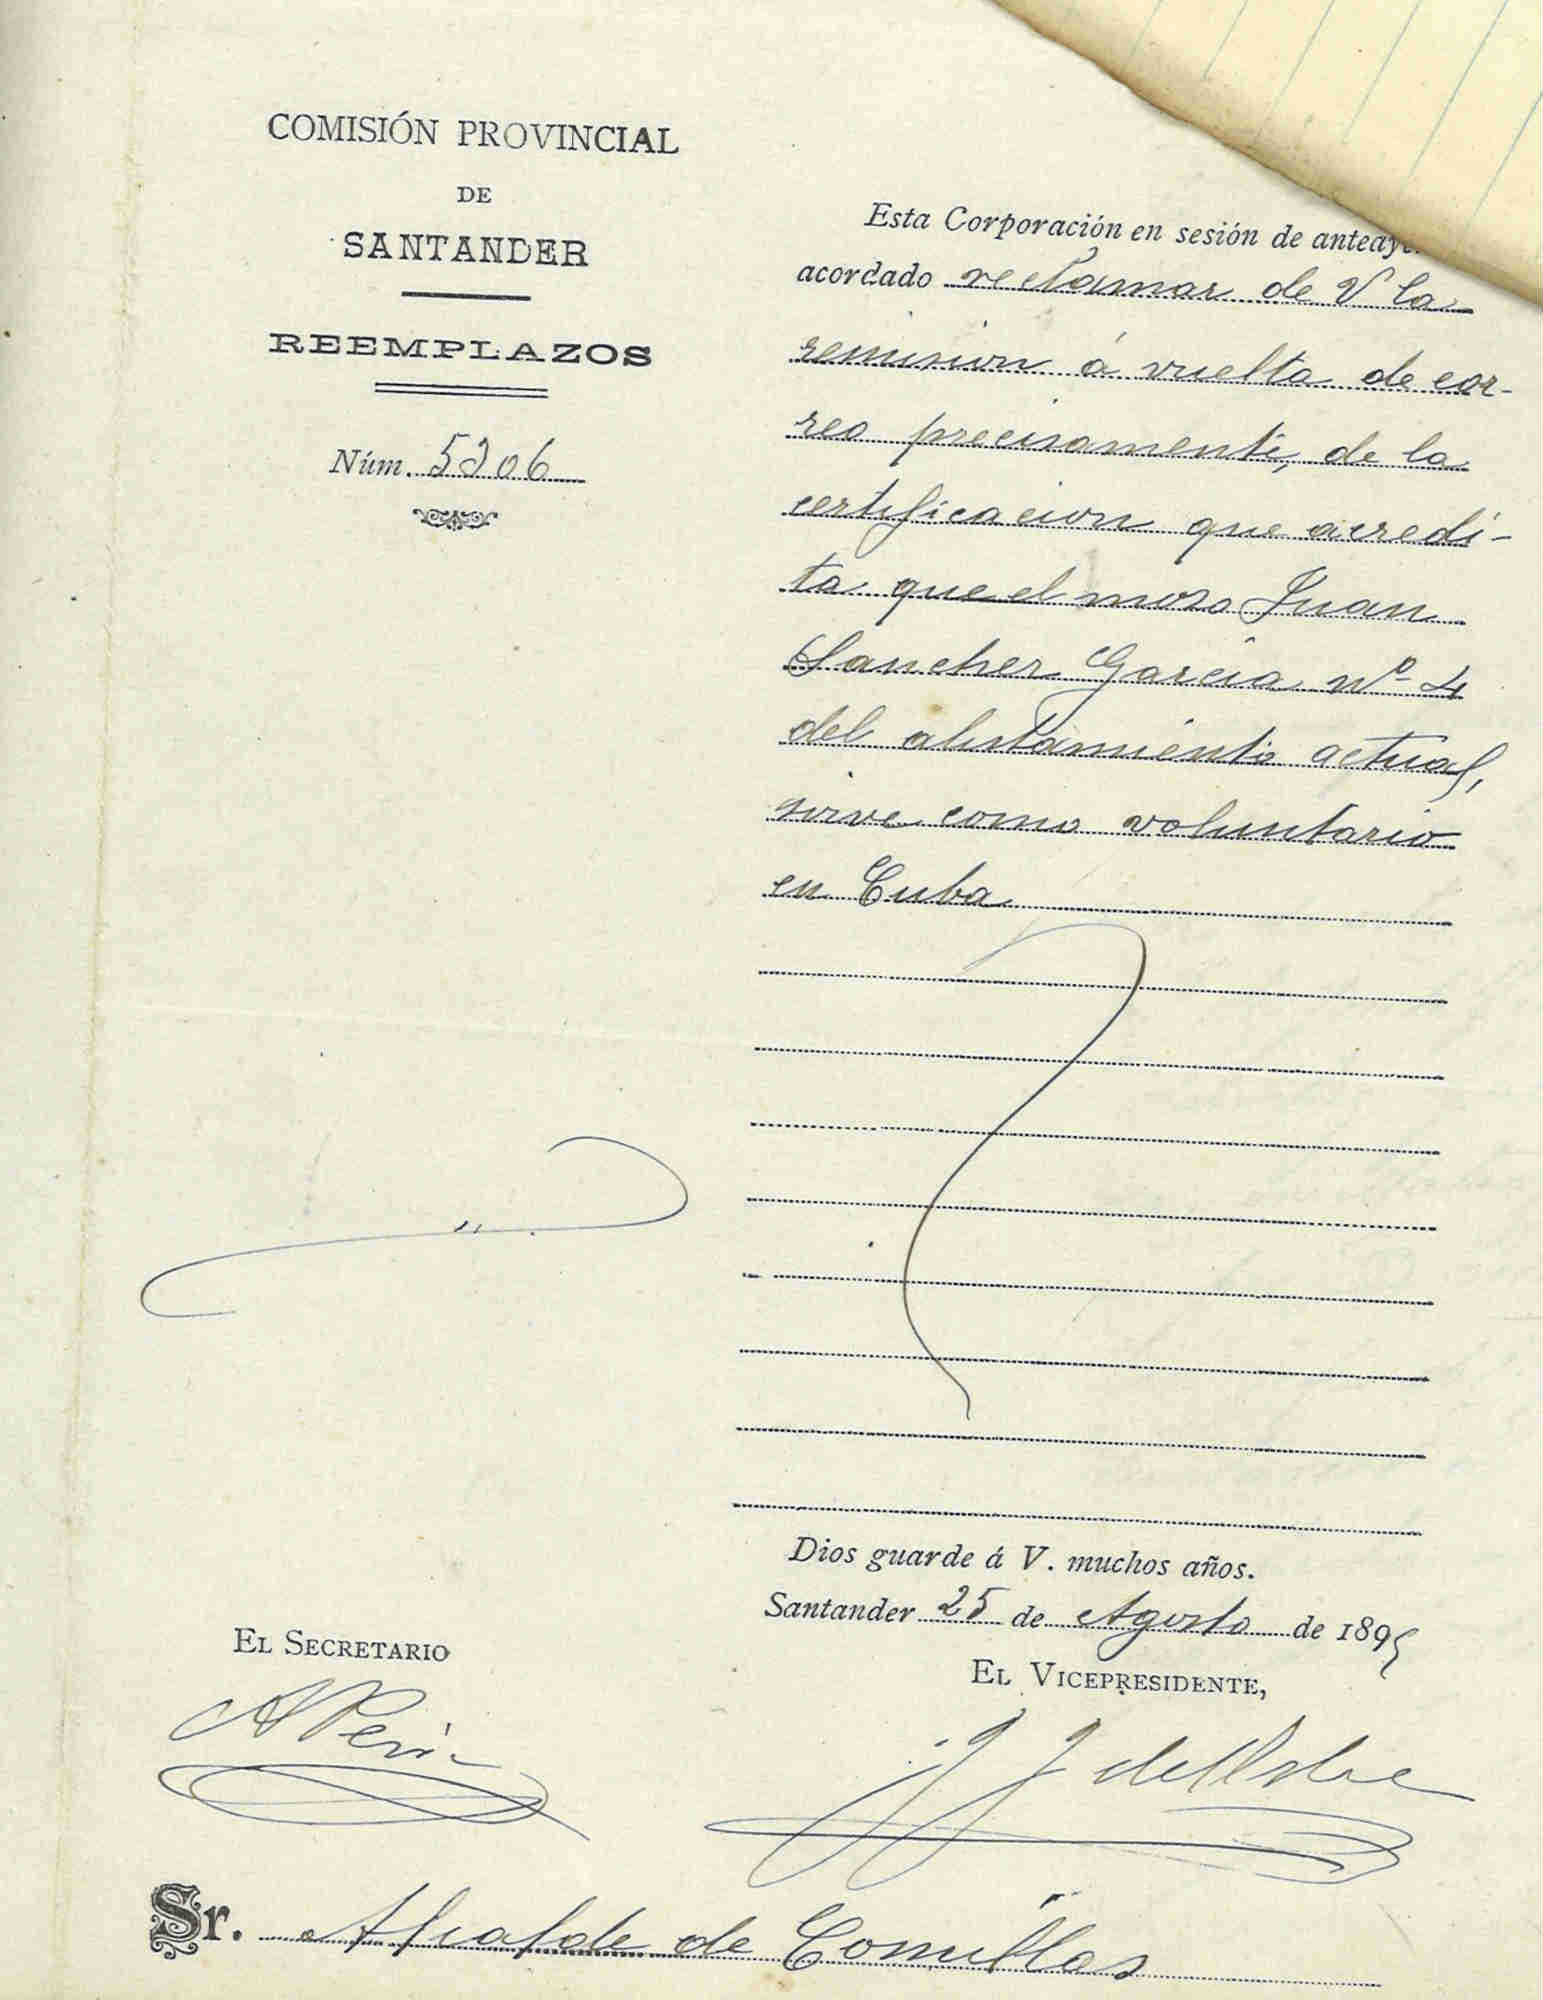 COMISIÓN PROVINCIAL
DE
SANTANDER
REEMPLAZOS
Núm. 5206
Esta Corporación en sesión de anteay
acordado reclamar de V la
remision á vuelta de cor-
reo precisamente, de la
certificacion que acredi-
ta que el mozo Juan
Sanchez Garcia nº 4
del alistamiento actual,
sirve como voluntario
en Cuba
Dios guarde á V. muchos años.
Santander 25 de Agosto de 1895
EL SECRETARIO
EL VICEPRESIDENTE,
Sr. Alcalde de Comillas